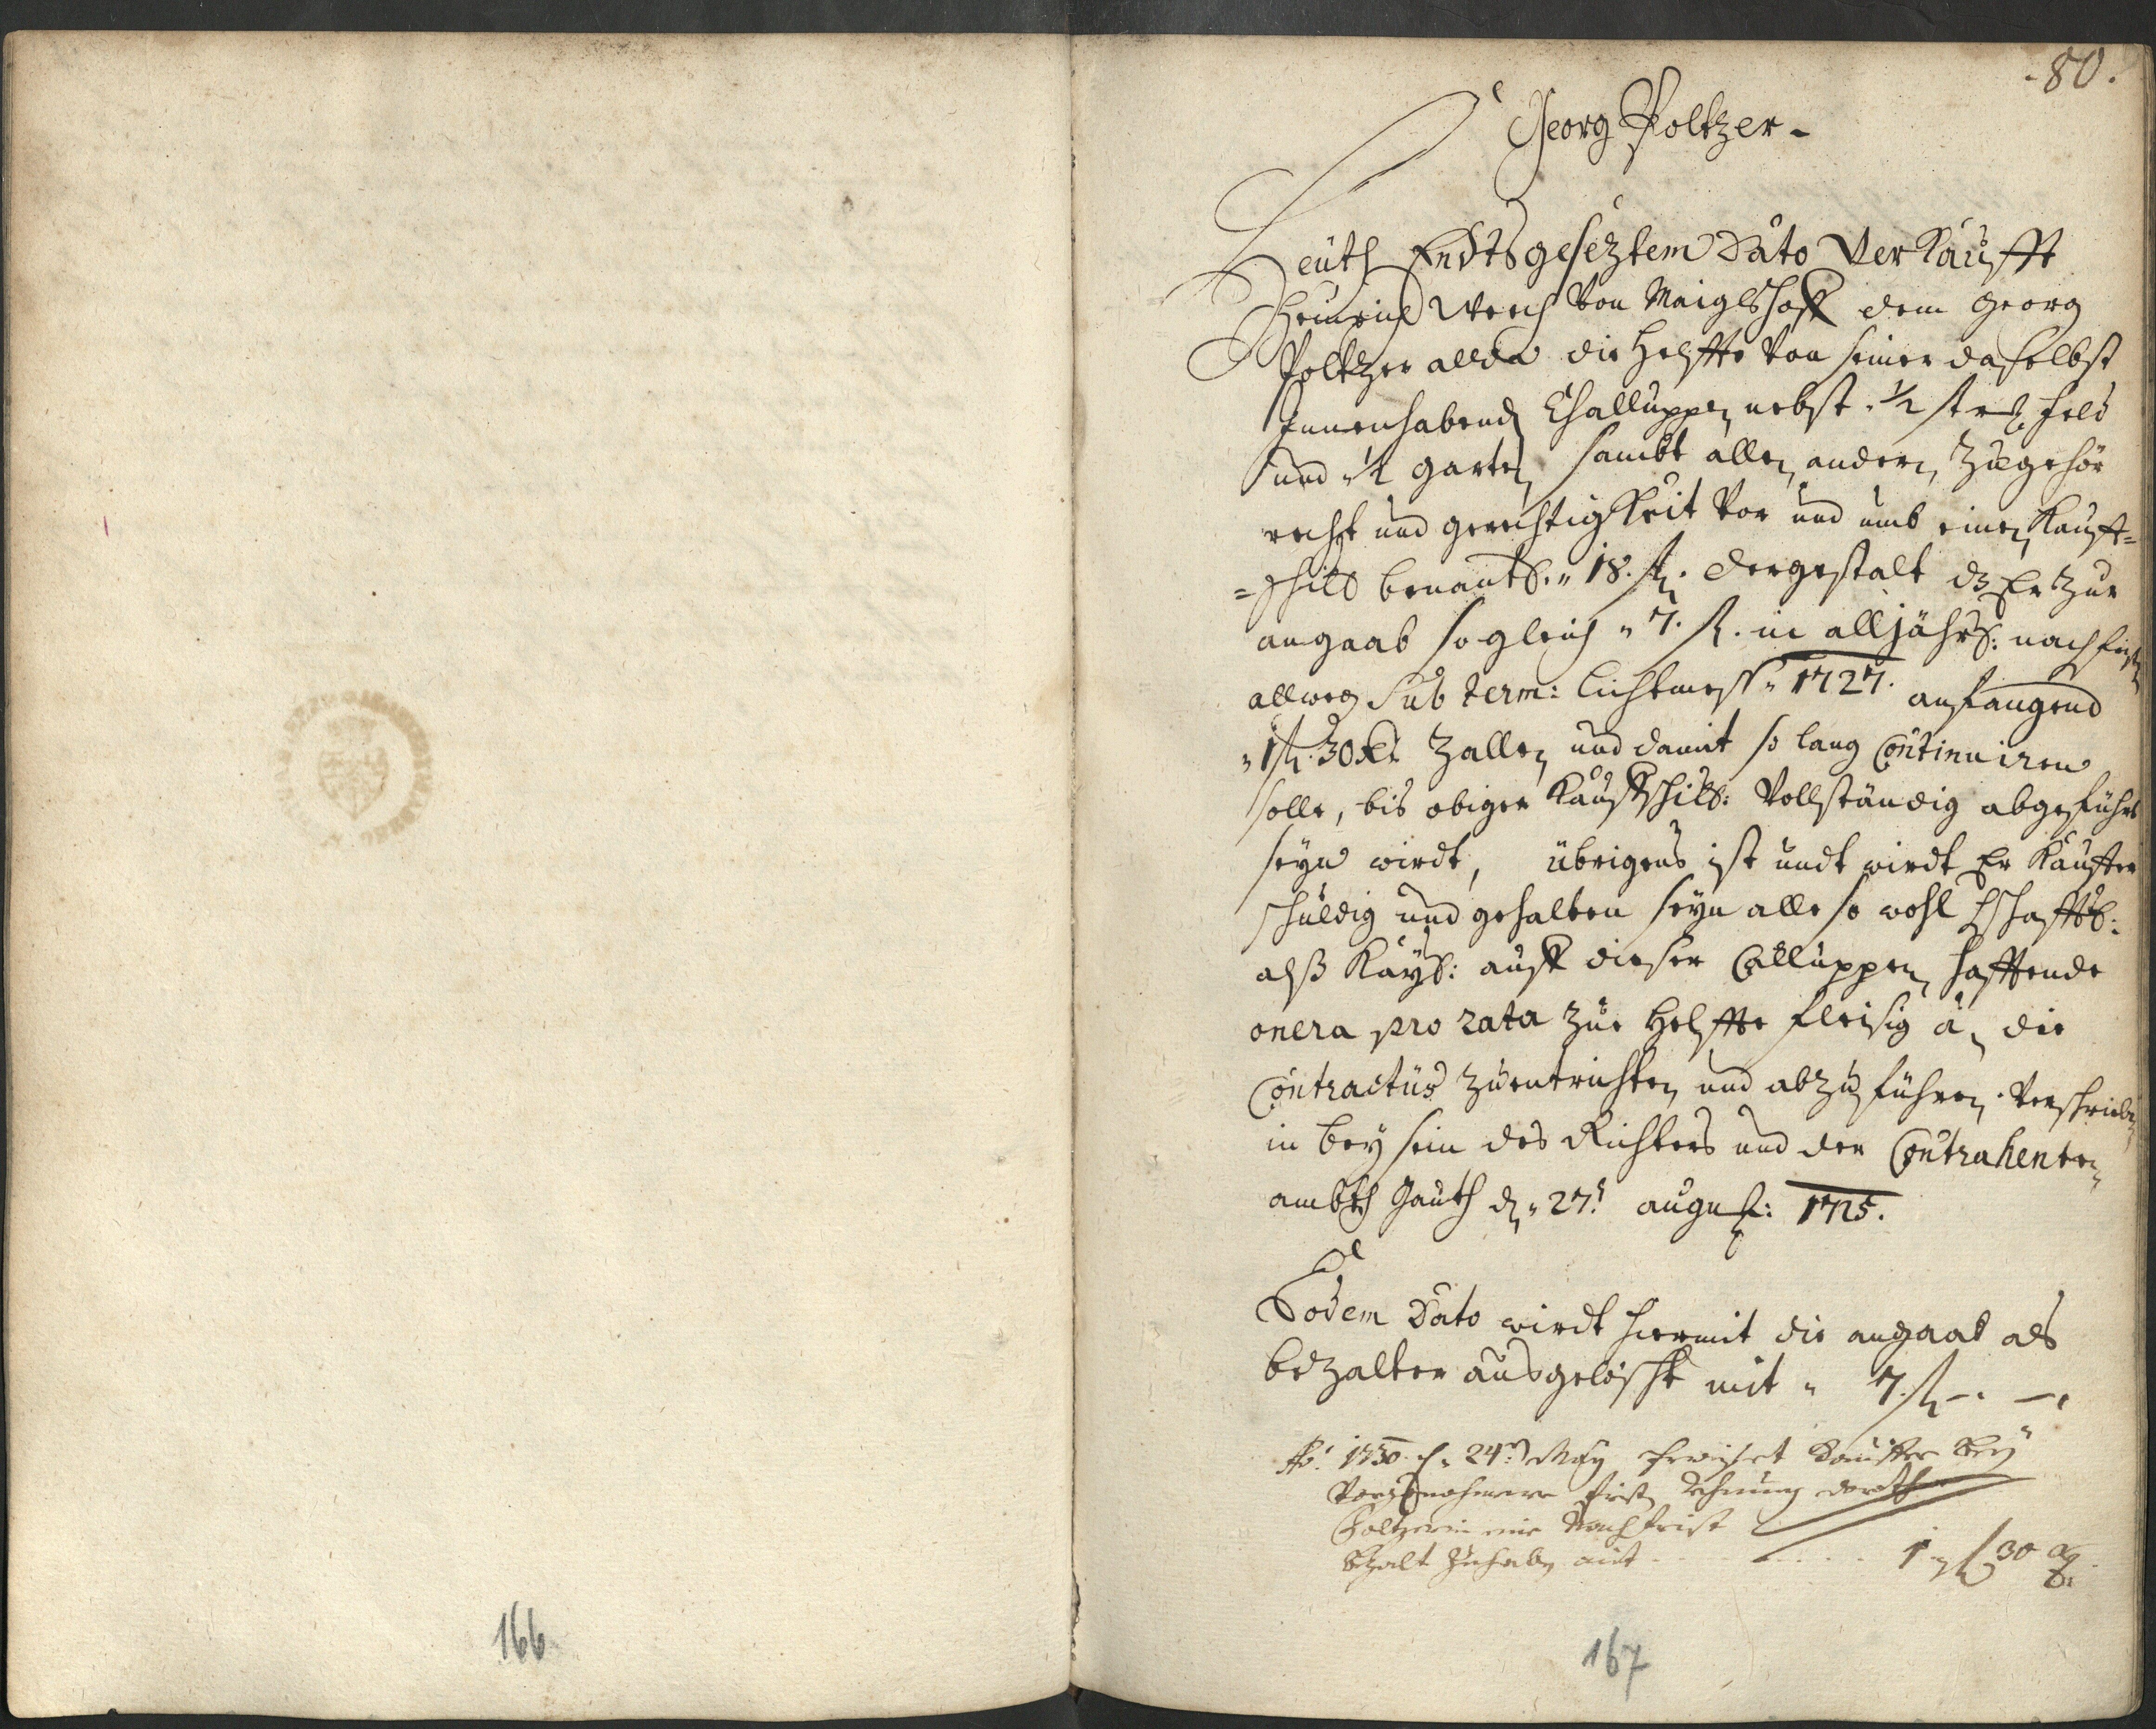 80.
Georg Poltzer.
Heüth Endtsgeseztem Dato Verkaufft
Heinrich Werch von Maiglshoff dem Georg
Poltzer allda die Helffte von seiner daselbst
Innenhabend Challuppen nebst 1/2 str. Feld
und 1/2 garten sambt allen andern zugehör
recht und gerechtigkeit vor und umb einen Kauff=
=schild benantl. 18. fl. dergestalt dz Er zur
angaab sogleich 7. fl. in alljährl: nachfrist
allweg Sub term: Lichtmess 1727. anfangend
1 fl. 30 xr zallen und damit so lang Continuiren
solle, bis obiger Kauffschill: Vollständig abgeführt
seyn wirdt, übrigens ist undt wirdt Er Kauffer
schuldig und gehalten seyn alle so wohl hschafftl:
alß Kayl: auff dieser Calluppen hafftende
onera pro rata zur Helffte fleisig à die
Contractus zuentrichten und abzuführen. Verschrieben
in beysein des Richters und der Contrahenten
ambth Gauth d. 27. august: 1725.
Eodem Dato wirdt hiermit die angaab als
bezalter ausgelöscht mit 7. fl -. -.
Ao. 1730. d. 24. May erweiset Kauffer bey
vorgenohmener frist Rechnung
Poltzerin eine Nachfrist
bezalt zuhaben mit 1 fl 30 xr
166
167